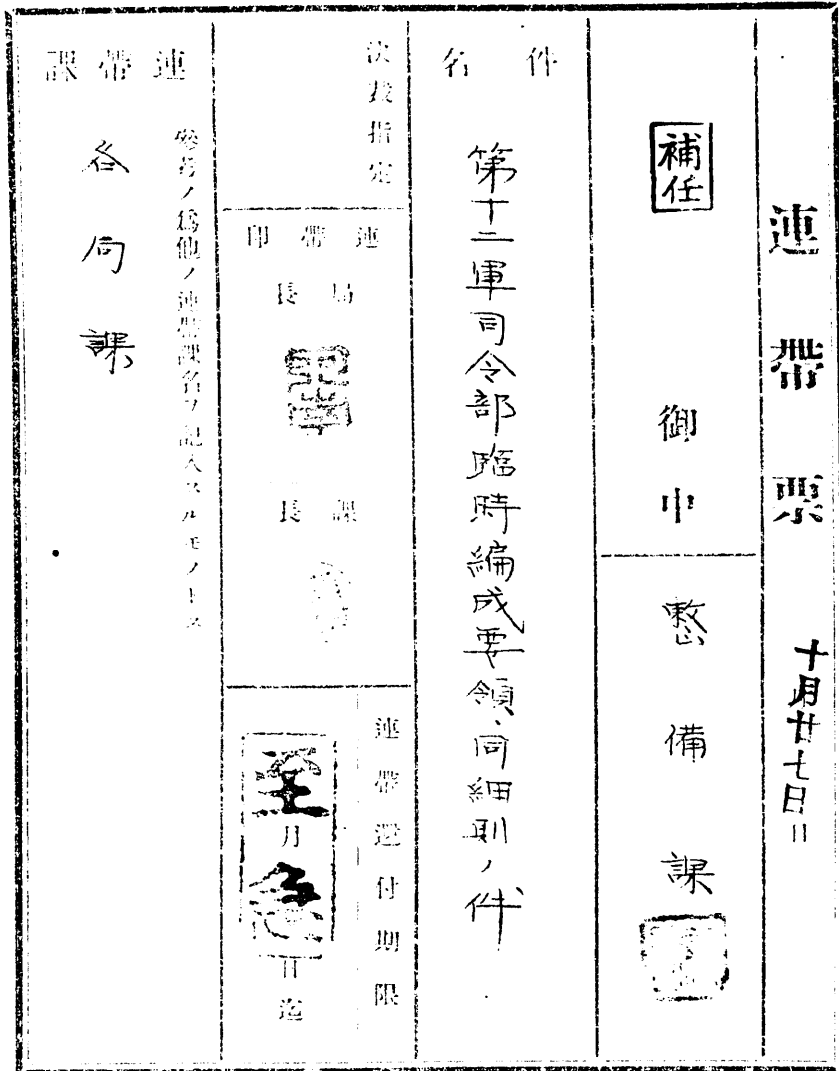 連帶票
十月廿七日
補任 御中
整備課
件名
第十二軍司令部臨時編成要領、同細則ノ件
決裁指定
連帶印
局長
課長
連帶還付期限
至急
月
日迄
連帶課
參考ノ爲他ノ連帶課名ヲ記入スルモノトス
各局課